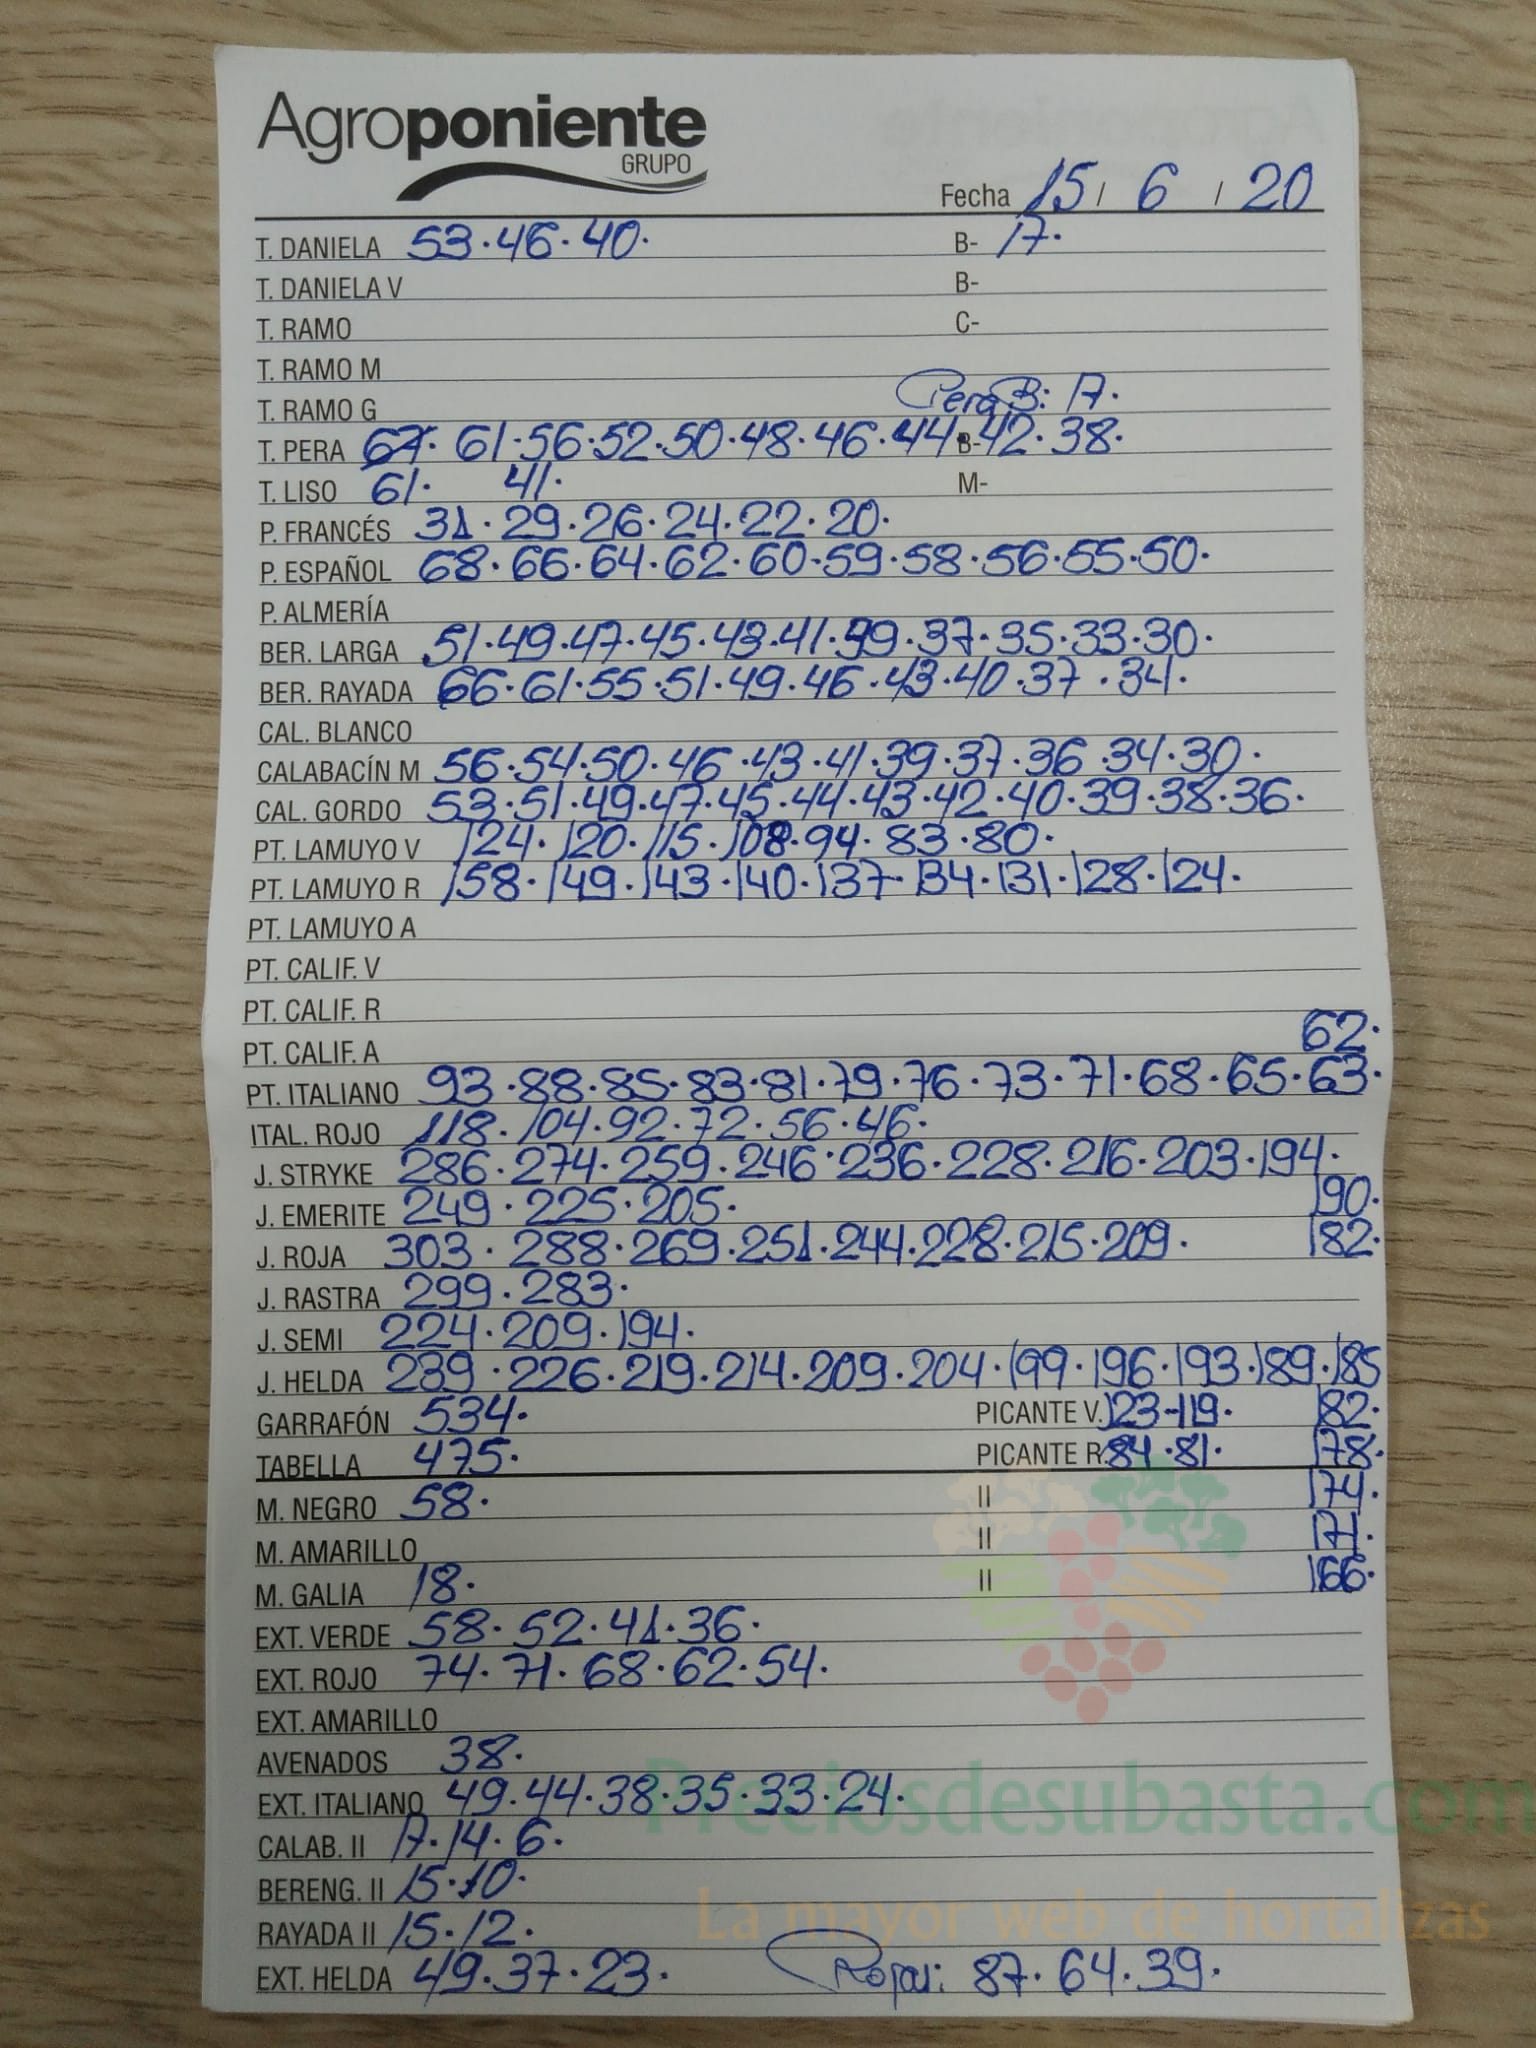 Agroponiente
GRUPO
Fecha 15 / 6 / 20
T. DANIELA 53·46·40· B- 17·
T. DANIELA V B-
T. RAMO C-
T. RAMO M
T. RAMO G Pera B: 17·
T. PERA 67· 61·56·52·50·48·46·44·B-42·38·
T. LISO 61· 41· M-
P. FRANCÉS 31·29·26·24·22·20·
P. ESPAÑOL 68·66·64·62·60·59·58·56·55·50·
P. ALMERÍA
BER. LARGA 51·49·47·45·43·41·39·37·35·33·30·
BER. RAYADA 66·61·55·51·49·46·43·40·37·34·
CAL. BLANCO
CALABACÍN M 56·54·50·46·43·41·39·37·36·34·30·
CAL. GORDO 53·51·49·47·45·44·43·42·40·39·38·36·
PT. LAMUYO V 124·120·115·108·94·83·80·
PT. LAMUYO R 158·149·143·140·137·134·131·128·124·
PT. LAMUYO A
PT. CALIF. V
PT. CALIF. R
PT. CALIF. A 62·
PT. ITALIANO 93·88·85·83·81·79·76·73·71·68·65·63·
ITAL. ROJO 118·104·92·72·56·46·
J. STRYKE 286·274·259·246·236·228·216·203·194·
J. EMERITE 249·225·205· 190·
J. ROJA 303·288·269·251·244·228·215·209· 182·
J. RASTRA 299·283·
J. SEMI 224·209·194·
J. HELDA 239·226·219·214·209·204·199·196·193·189·185
GARRAFÓN 534· PICANTE V. 123-119· 182·
TABELLA 475· PICANTE R. 84·81· 178·
M. NEGRO 58· II 174·
M. AMARILLO II 171·
M. GALIA 18· II 166·
EXT. VERDE 58·52·41·36·
EXT. ROJO 74·71·68·62·54·
EXT. AMARILLO
AVENADOS 38·
EXT. ITALIANO 49·44·38·35·33·24·
Preciosdesubasta.com
CALAB. II 17·14·6·
BERENG. II 15·10·
La mayor web de hortalizas
RAYADA II 15·12·
EXT. HELDA 49·37·23· Rojas: 87·64·39·